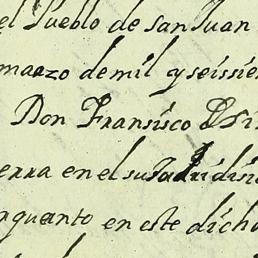 el Pueblo de san Juan
marzo de mil y seissie
Don Fransisco
erra en el su
nquanto en este dicho